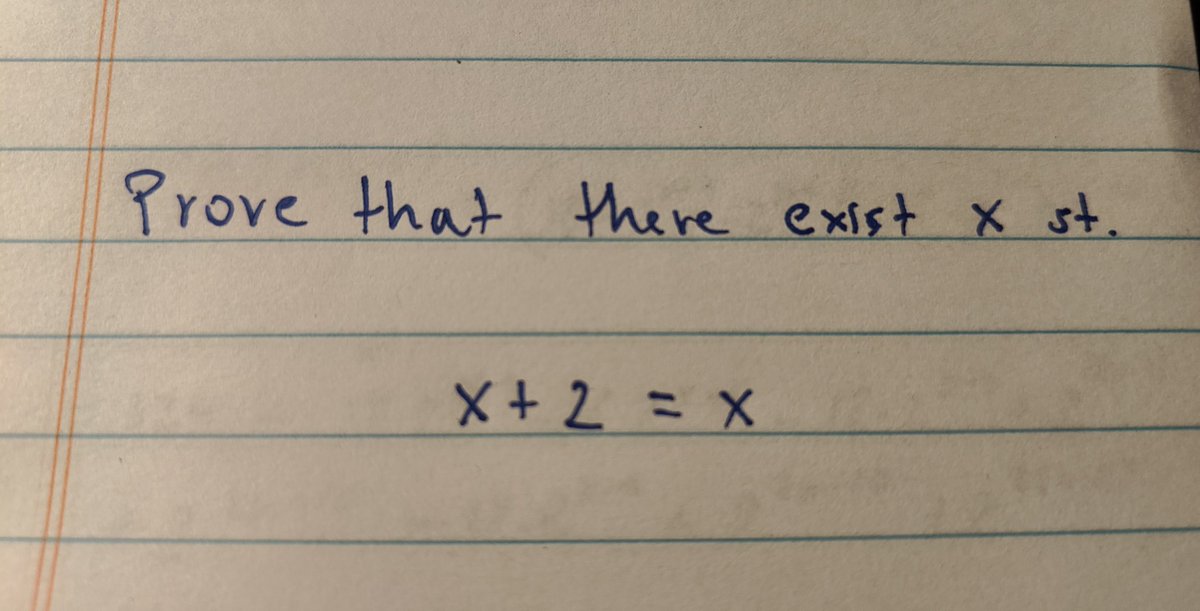 Prove that there exist x st.
x + 2 = x